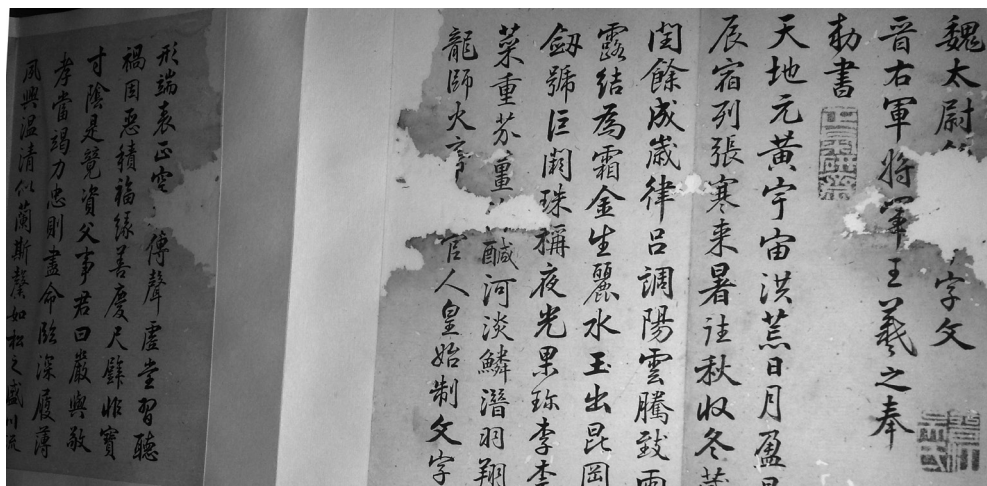 魏太尉 字文
晉右軍將軍王羲之奉
勅書
天地元黃宇宙洪荒日月盈
辰宿列張寒来暑往秋收冬
閏餘成歲律呂調陽雲騰致雨
露結為霜金生麗水玉出崑岡
劔號巨闕珠稱夜光果珎李
菜重芥薑 鹹河淡鱗潛羽翔
龍師火 官人皇始制文字
形端表正空 傳聲虛堂習聽
禍因惡積福緣善慶尺璧非寶
寸陰是競資父事君曰嚴與敬
孝當竭力忠則盡命臨深履薄
夙興溫凊似蘭斯馨如松之盛川流